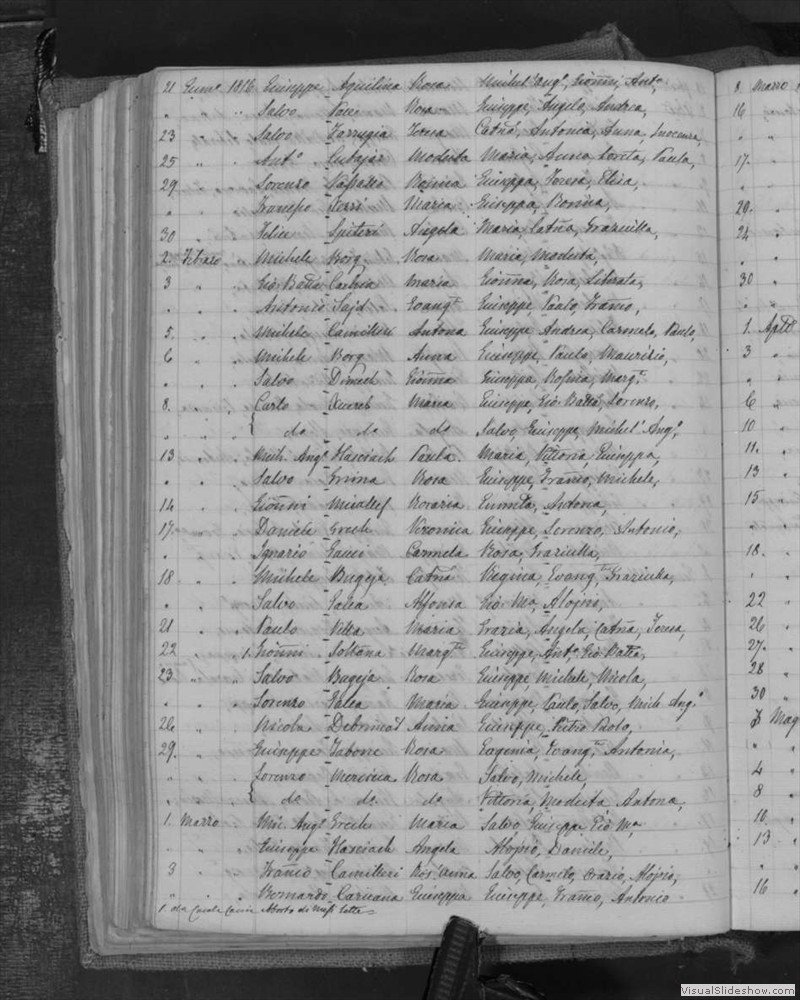 21 Genn.º 1816 Giuseppe Aquilina Rosa Michel'Ang.º, Gionni, Ant.º,
" " " Salvo Pace Rosa Giuseppe, Angelo, Andrea,
23 " " Salvo Farrugia Teresa Catna, Antonia, Anna, Inocenza,
25 " " Ant.º Cutajar Modesta Maria, Anna Loreta, Paula,
29 " " Lorenzo Rosina Giuseppa, Teresa, Elisa,
" " Maria Giuseppa, Rosina,
30 " " Felice Spiteri Angela Maria, Catna, Graziulla,
2 Febraro " Michele Borg Rosa Maria, Modesta,
3 " " Gio Batta Maria Gionna, Rosa, Liberata,
" " Antonio Sajd Evang.ta Giuseppe, Paolo, Franco,
5 " " Michele Camilleri Antona Giuseppe Andrea, Carmelo, Paulo,
6 " " Michele Borg Anna Giuseppe, Paulo, Maurizio,
" " Salvo Dimech Gionna Giuseppa, Rosina, Marg.ta
8 " " Carlo Xuereb Maria Giuseppe, Gio Batta, Lorenzo,
" " { do do do Salvo, Giuseppe, Michel'Ang.º,
13 " " Mich. Ang.º Hasciach Paula Maria, Vittoria, Giuseppa,
" " Salvo Grima Rosa Giuseppe, Franco, Michele,
14 " " Gionni Micallef Rosaria Eumila, Antona,
17 " " Daniele Grech Veronica Giuseppe, Lorenzo, Antonio,
" " Ignazio Gauci Carmela Rosa, Graziulla,
18 " " Michele Bugeja Catna Regina, Evang.ta Graziulla,
" " Salvo Galea Alfonsa Gio Ma Alojsio,
21 " " Paulo Vella Maria Grazia, Angela, Catna, Teresa,
22 " " 1. Gionni Soltana Marg.ta Giuseppe, Ant.º, Gio Batta,
23 " " Salvo Bugeja Rosa Giuseppe, Michele, Nicola,
" " Lorenzo Galea Maria Giuseppe, Paulo, Salvo, Mich Ang.º
26 " " Nicola Debrincat Anna Giuseppe, Pietro Paolo,
29 " " Giuseppe Tabone Rosa Eugenia, Evang.ta Antonia,
" " Lorenzo Mercieca Rosa Salvo, Michele,
" " { do do do Vittoria, Modesta, Antona,
1. Marzo " Mic. Ang.º Grech Maria Salvo, Giuseppe, Gio Ma
" " Giuseppe Hasciach Angela Alojsio, Daniele,
3 " " Franco Camilleri Ros'Anna Salvo, Carmelo, Orazio, Alojsio,
" " Bernardo Caruana Giuseppa Giuseppe, Franco, Antonio
1. da Casale
8 Marzo
16
17
20
24
30
1. Aple
3
6
10
11
13
15
18
22
26
27
28
30
3 Mag
4
8
10
13
16
VisualSlideshow.com